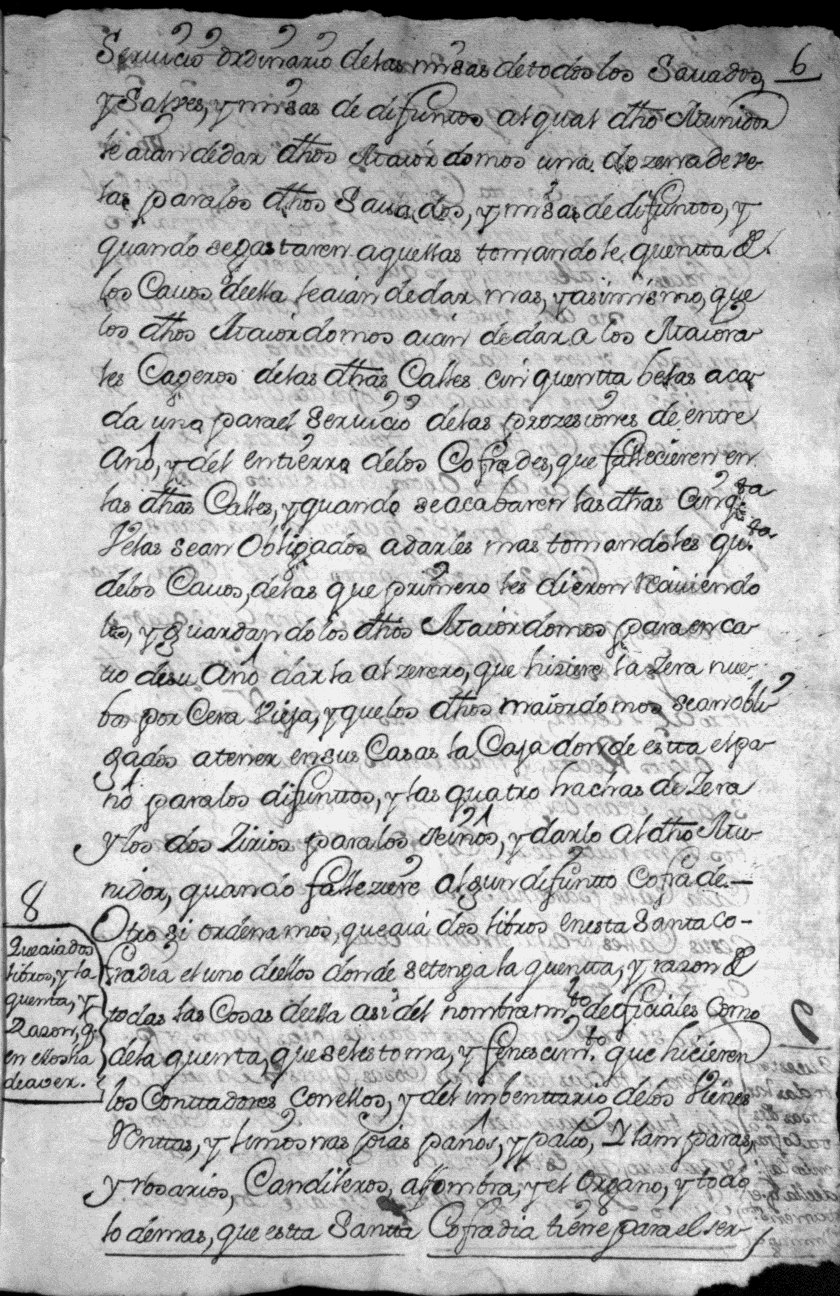 6
Seruicio ordinario delas misas detodos los Sauados,
y Salves, y misas de difuntos al qual dho Munidor
le aian dedar dhos Maiordomos una dozena de ve-
las paralos dhos Sauados, y misas de difuntos, y
quando segastaren aquellas tomandole quentta de
los Cauos deella leaian dedar mas, y asimismo, que
los dhos Maiordomos aian dedar a los Maiora-
les Cageros delas dhas Calles cinquentta belas aca-
da una parael Seruicio delas prozesiones de entre
Año, y del entierro delos Cofrades, que fallecieren en
las dhas Calles, y quando seacabaren las dhas Cinqta
Velas sean Obligados adarles mas tomandoles qta
delos Cauos, delas que primero les dieron reciuiendo
los, y guardandolos dhos Maiordomos para en ca-
uo desu Año darla al zerero, que hiziere la Zera nue-
ba por Cera Vieja, y quelos dhos maiordomos sean obli-
gados atener ensus Casas la Caja donde estta elpa-
ño paralos difunttos, y las quatro hachas de Zera
y los dos Zirios paralos Niños, y darlo al dho Mu-
nidor, quando fallezière algun difuntto Cofrade.—
8
Otro si ordenamos, queaiá dos libros enesta Santa Co-
fradia el uno deellos donde setenga la quentta, y razon de
todas las Cosas deella asi del nombramto deoficiales como
dela quenta, queseles toma, y fenescimto que hicieren
los Conttadores conellos, y del imbenttario delos Vienes
Renttas, y limosnas pias paños, y palio, y lamparas,
y rosarios, Candileros, alfombra, y el Organo, y todo
lo demas, que estta Santta Cofradia tiene para el ser-
Queaia dos
libros, y la
quenta, y
Razon, q
en elloshá
deaver.